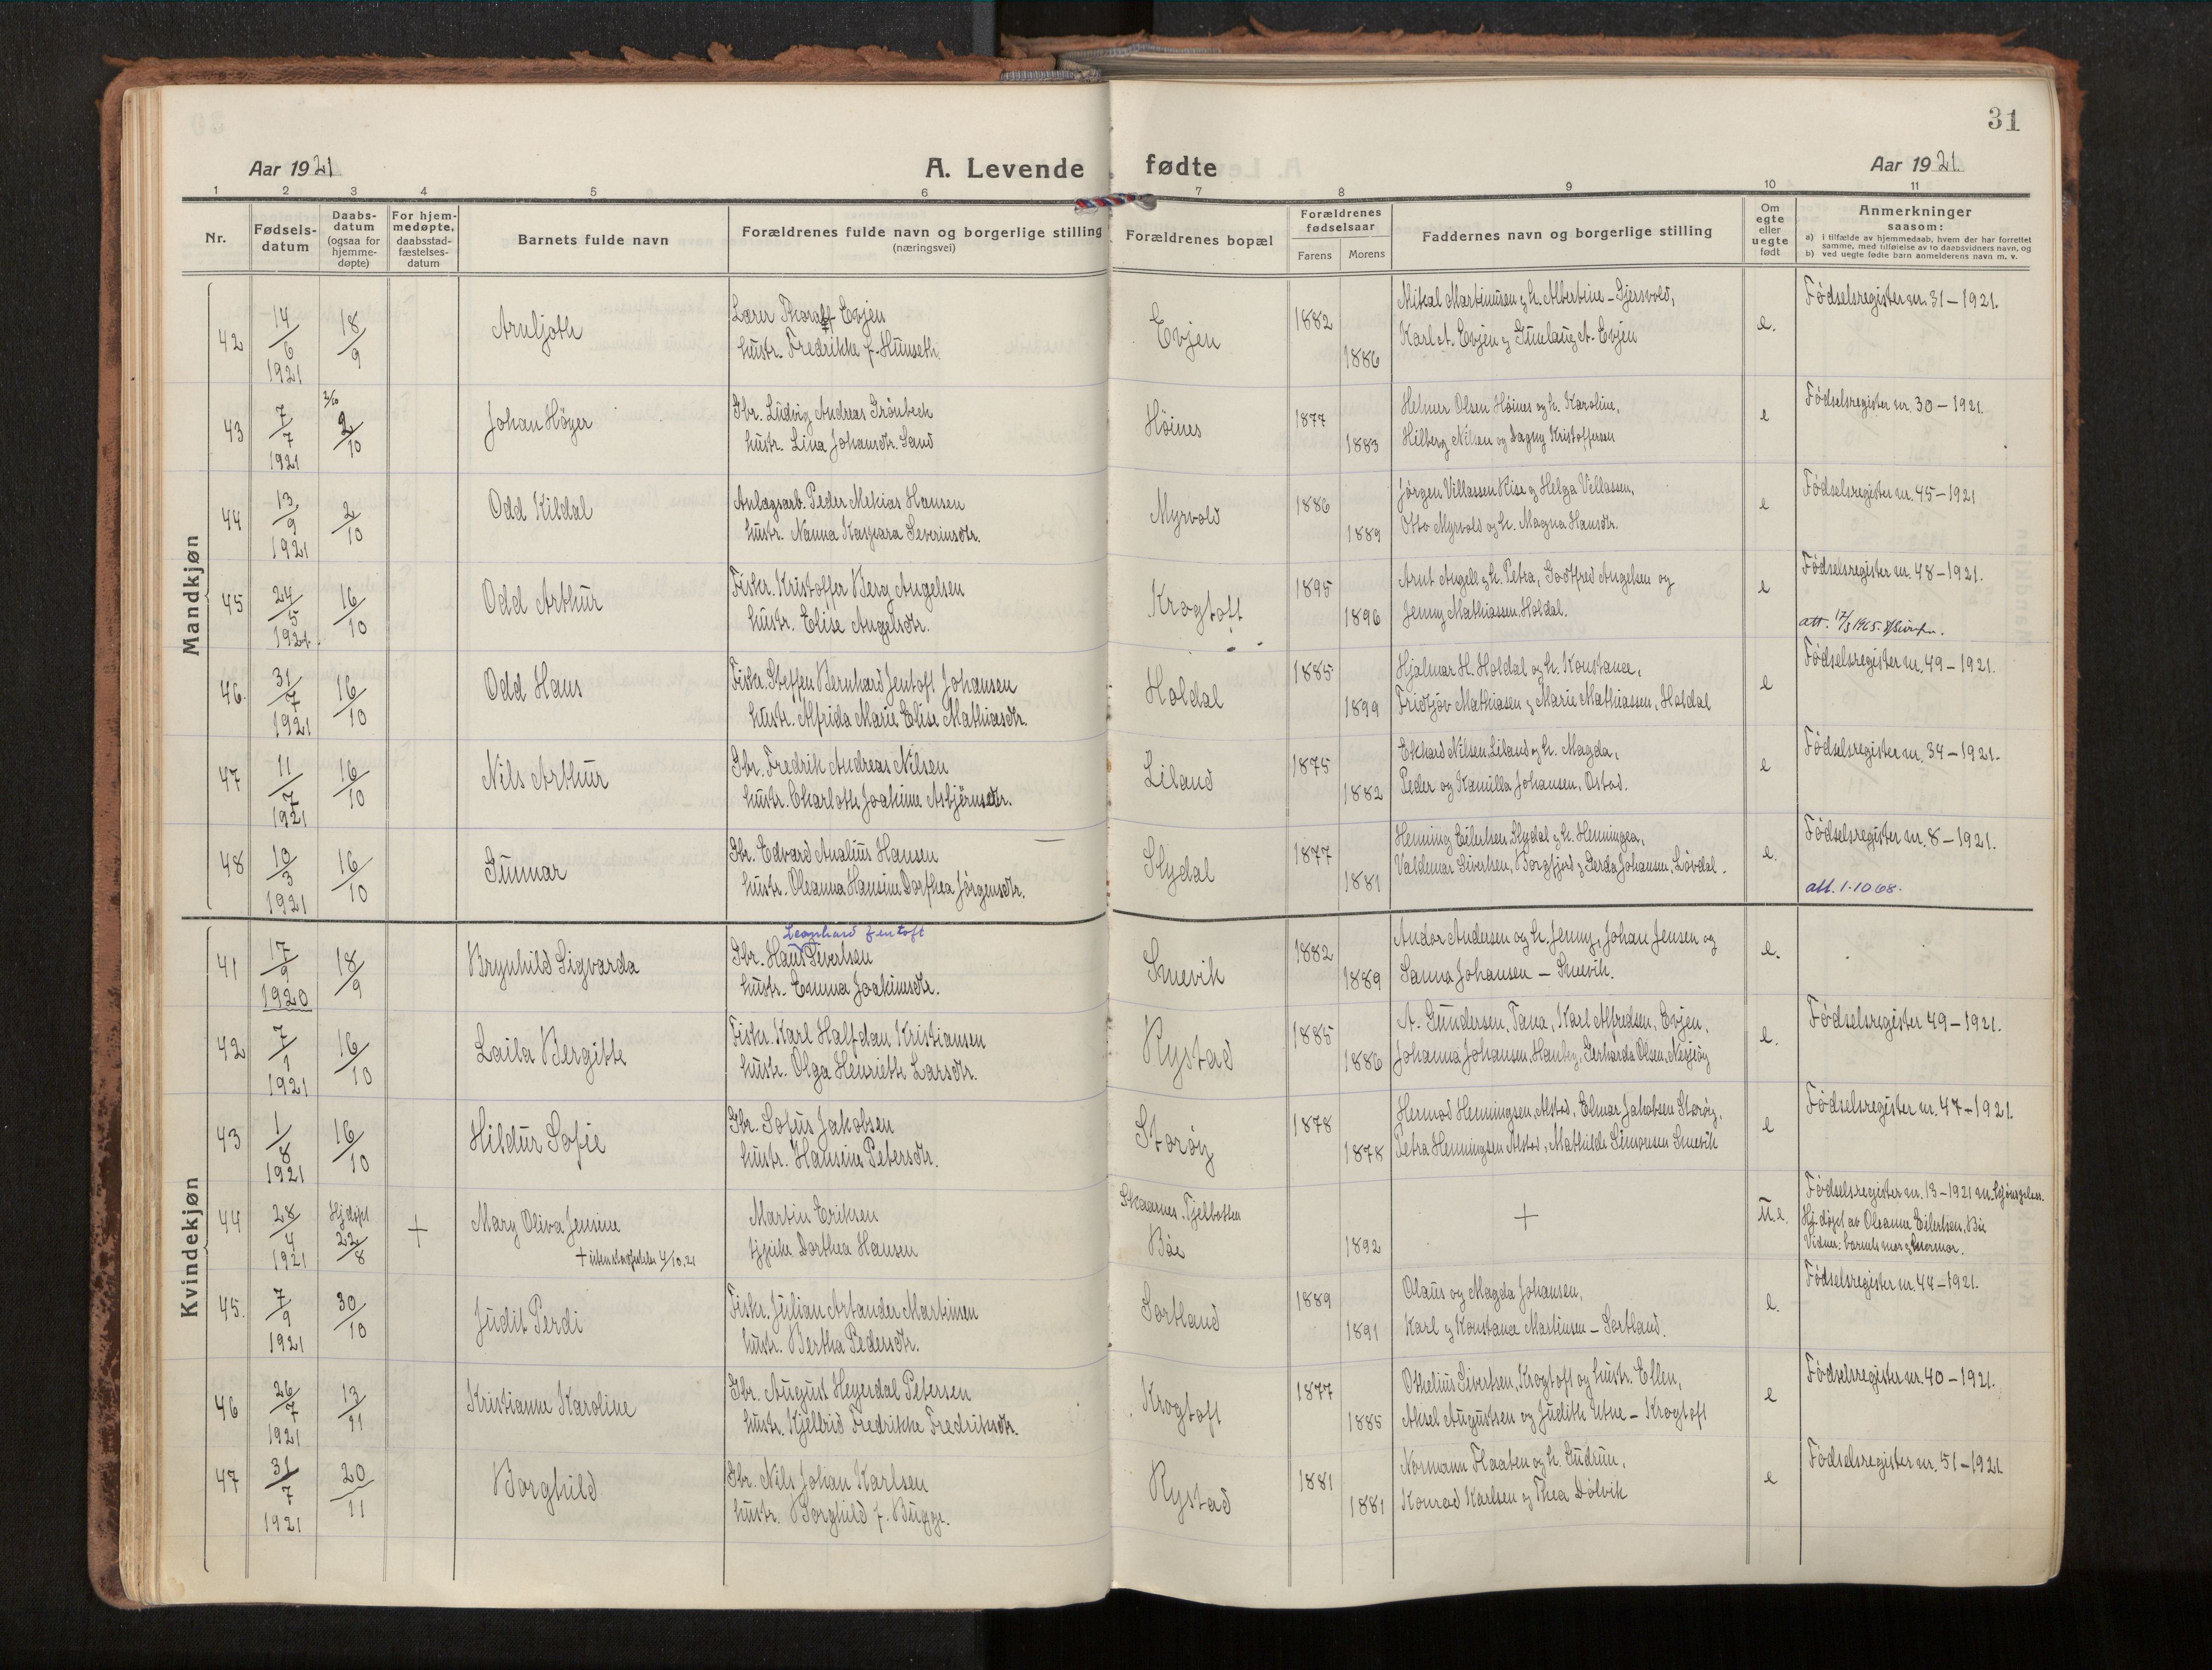 31
Aar 1921
A. Levende fødte
Aar 1921.
1 2 3 4 5 6 7 8 9 10 11
Nr.
Fødsels-datum
Daabs-datum (ogsaa for hjemme-døpte)
For hjem-medøpte, daabsstad-fæstelses-datum
Barnets fulde navn
Forældrenes fulde navn og borgerlige stilling (næringsvei)
Forældrenes bopæl
Forældrenes fødselsaar
Farens Morens
Faddernes navn og borgerlige stilling
Om egte eller uegte født
Anmerkninger saasom:
a) i tilfælde av hjemmedaab, hvem der har forrettet samme, med tilføielse av to daabsvidners navn, og
b) ved uegte fødte barn anmelderens navn m. v.
Mandkjøn
42 14/6 1921 18/9 Arnljoth
Lærer Thoralf Evjen
hustr. Fredrikke f. Hunseth.
Evjen 1882 1886
Mikal Martinusen og h. Albertine - Gjersvold,
Karl A. Evjen og Gunlaug A. Evjen
e. Fødselsregister nr. 31 - 1921.
43 7/7 1921 2/10 Johan Höyer
Gbr. Ludvig Andreas Grönbech
hustr. Lina Johansdtr. Sand
Höines 1877 1883
Helmer Olsen Höines og h. Karoline,
Hilberg Nilsen og Dagny Kristoffersen
e Fødselsregister nr. 30 - 1921.
44 13/9 1921 2/10 Odd Kildal
Anlægsarb. Peder Mekias Hansen
hustr. Nanna Kaspara Severinsdtr.
Myrvold 1886 1889
Jörgen Villassen Kise og Helga Villassen,
Otto Myrvold og h. Magna Hansdtr.
e Fødselsregister nr. 45 - 1921
45 24/5 1921. 16/10 Odd Arthur
Fiskr. Kristoffer Berg Angelsen
hustr. Elise Angelsdtr.
Krogtoft 1895 1896
Arnt Angell og h. Petra, Godtfred Angelsen og
Jenny Mathiassen. Holdal.
e Fødselsregister nr. 48 - 1921.
att. 17/3 1965.
46. 31/7 1921 16/10 Odd Hans
Fiskr. Steffen Bernhard Jentoft Johansen
hustr. Alfrida Marie Elise Mathiasdtr.
Holdal 1885 1899
Hjalmar H. Holdal og h. Konstance,
Fridtjöv Mathiasen og Marie Mathiassen, Holdal
e Fødselsregister nr. 49 - 1921.
47 11/7 1921 16/10 Nils Arthur
Gbr. Fredrik Andreas Nilsen
hustr. Charlotte Joakime Asbjörnsdtr.
Liland 1875 1882
Ekhard Nilsen, Liland og h. Magda,
Peder og Kamilla Johansen, Ostad.
e Fødselsregister nr. 34 - 1921.
48 10/3 1921 16/10 Gunnar
Gbr. Edvard Analius Hansen
hustr. Oleanna Hansine Dorthea Jörgensdtr.
Slydal 1877 1881
Henning Eilertsen Slydal og h. Henningea,
Valdemar Sivertsen, Borgfjord og Gerda Johansen Lövdal.
e. Fødselsregister nr. 8 - 1921.
att. 1.10 68.
Kvindekjøn
41 17/9 1920 18/9 Brynhild Sigvarda
Leonhard Jentoft
Gbr. Hans Sivertsen
hustr. Emma Joakimsdtr.
Smevik 1882 1889
Andor Andersen og h. Jenny, Johan Jensen og
Sanna Johansen - Smevik.
e.
42 7/9 1921 16/10 Laila Bergitte
Fiskr. Karl Halfdan Kristiansen
hustr. Olga Henriette Larsdtr.
Rystad 1885 1886
A. Gundersen, Tana, Karl Alfredsen, Evjen,
Johanna Johansen, Gerharda Olsen,
e. Fødselsregister 49 - 1921.
43 1/8 1921 16/10 Hildur Sofie
Gbr. Sofus Jakobsen
hustr. Hansine Petersdtr.
Storöy 1878 1878
Hermod Henningsen, Alstad, Elmar Jakobsen Storöy,
Petra Henningsen Alstad, Mathilde Simonsen Smevik
e Fødselsregister nr. 47 - 1921.
44 28/4 1921 Hjdöpt 22/8 + Mary Oliva Jensine
4/10.21
Martin Eriksen
pike Dorthea Hansen
Skaarnes, Tjelbotten
Böe 1892
+
u.e. Fødselsregister nr. 13 - 1921
Hj. döpt av Oleanne Eilertsen, Bö
Vidner: barnets mor og mormor.
45. 7/9 1921 30/10 Judit Perdi
Fiskr. Julian Artander Martinsen
hustr. Bertha Pedersdtr.
Sortland 1889 1891
Olaus og Magda Johansen,
Karl og Konstance Martinsen - Sortland.
e. Fødselsregister nr. 44 - 1921.
46 26/7 1921 13/11 Kristianne Karoline
Gbr. August Heyerdal Petersen
hustr. Kjellrid Fredrikke Fredriksdtr.
Krogtoft 1877 1885
Othelius Sivertsen, Krogtoft og hustr. Ellen,
Aksel Augustsen og Judith Utne - Krogtoft
e Fødselsregister nr. 40 - 1921.
47 31/7 1921 20/11 Borghild
Gbr. Nils Johan Karlsen
hustr. Borghild f. Bugge.
Rystad 1881 1881
Normann Flaaten og h. Gudrun,
Konrad Karlsen og Thea Dölvik
e Fødselsregister nr. 51 - 1921